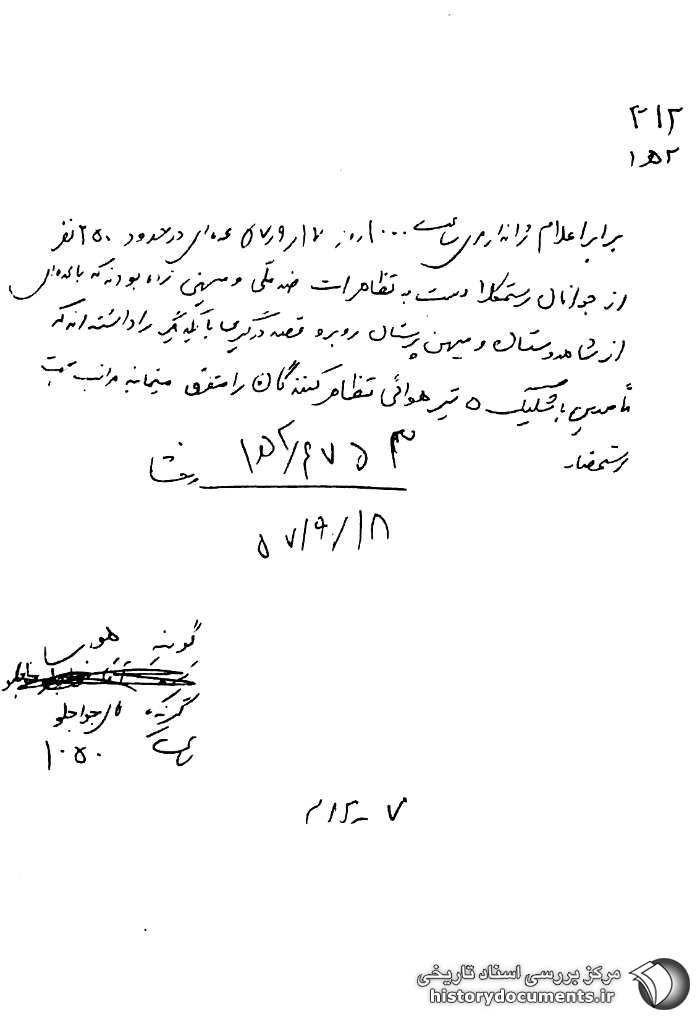 ۳۱۲
۱ه۲
برابر اعلام ژاندارمری ساعت ۱۰۰۰ روز ۵۷/۹/۱۷ عده‌ای در حدود ۲۵۰ نفر
از جوانان رستمکلا دست به تظاهرات ضد ملی و میهنی زده بودند که با عده‌ای
از شاهدوستان و میهن پرستان روبرو قصد درگیری با یکدیگر را داشته اند که
مأمورین با شلیک ۵ تیر هوائی تظاهر کنندگان را متفرق مینمایند مراتب جهت
استحضار
۱ه۲/۶۷۵۳
۵۷/۹/۱۸
گوینده
گیرنده خواجلو
ساعت ۱۰۵۰
مرکز بررسی اسناد تاریخی
historydocuments.ir